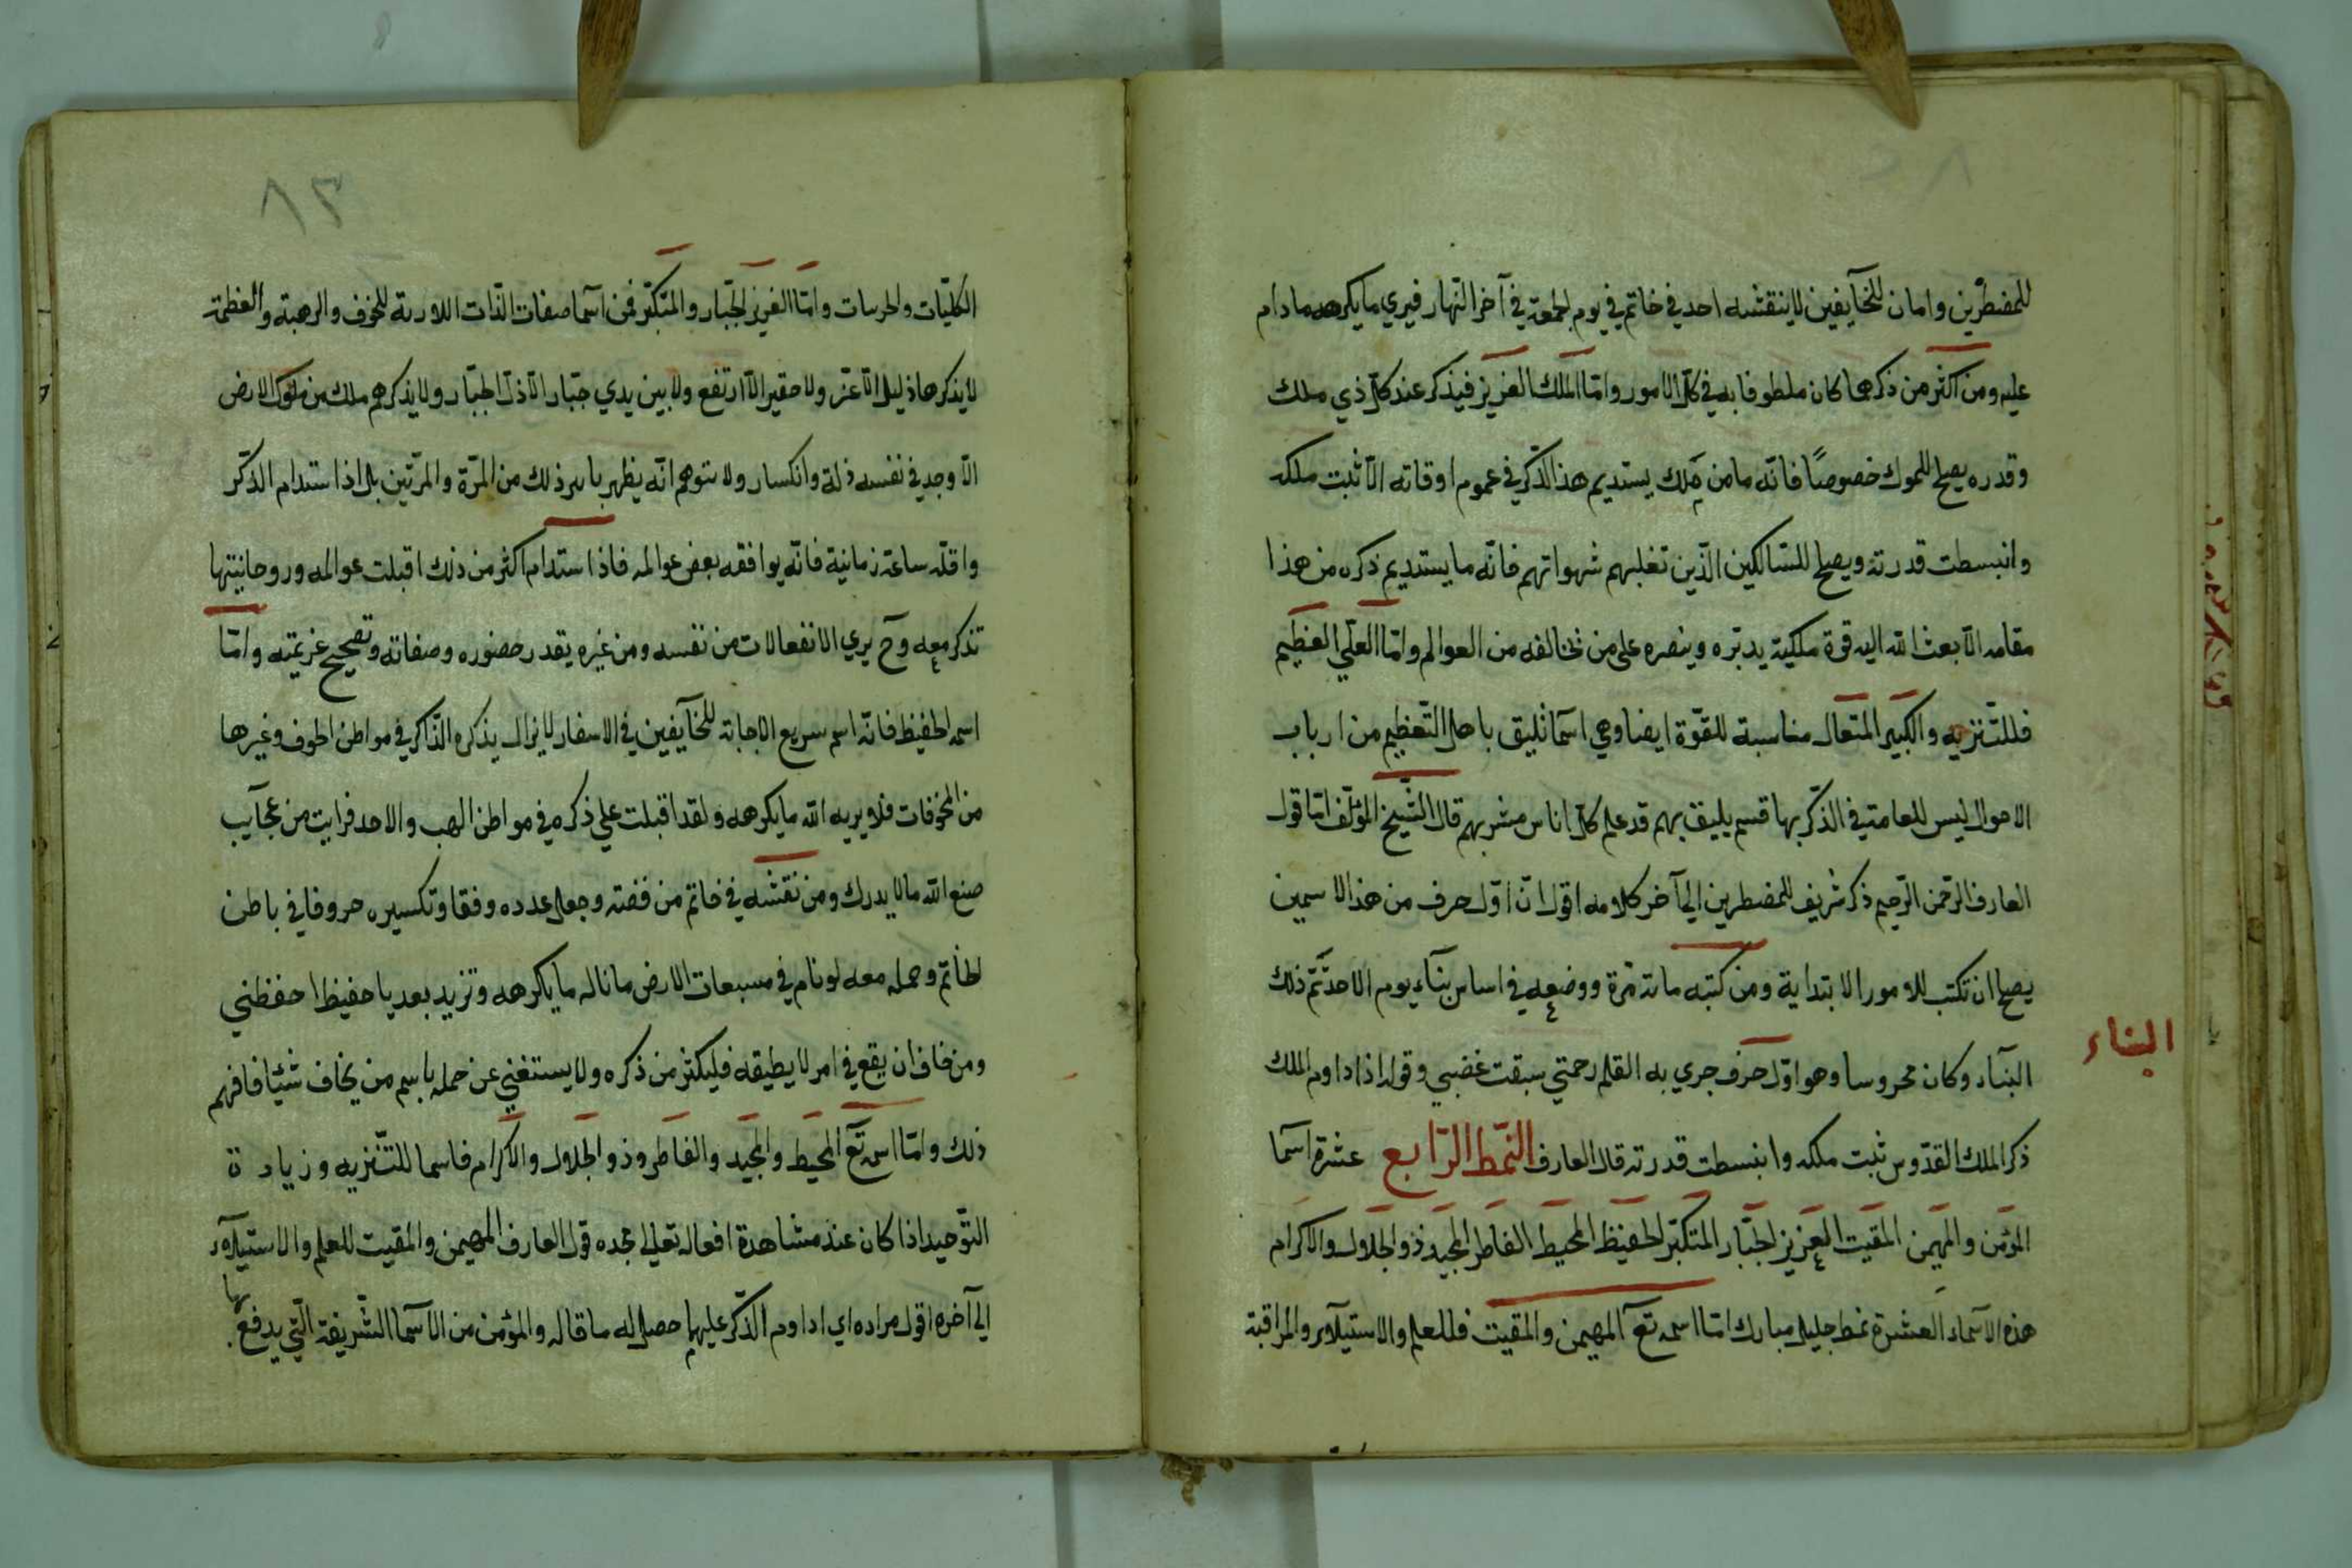 للمضطرين وامان للخآيفين لاينقشه احد في خاتم في يوم لجمعة في آخر النهار فيري مايكرهه مادام
عليه ومن اكثر من ذكرها كان ملطوفا به في كل الامور وامّا الملك العزيز فيذكر عند كل ذي ملك
وقدره يصلح للملوك خصوصًا فانّه مامن ملك يستديم هذ الذّكر في عموم اوقاته الّا ثبت ملكه
وانبسطت قدرته ويصلح للسّالكين الّذين تغلبهم شهواتهم فانّه مايستديم ذكره من هذا
مقامه الّا بعث الله اليه قوة ملكية يدبّره وينصره علي من تخالفه من العوالم وامّا العلّي العظيم
فللتّنزيه والكبير المتعال مناسبة للقوّة ايضا وهي اسمآ تليق باهل التّعظيم من ارباب
الاحوال ليس للعامة في الذّكر بها قسم يليق بهم قد علم كل اناس مشربهم قال الشّيخ المؤلّف امّا قول
العارف الرّحمن الرّحيم ذكر شريف للمضطرين الي آخر كلامه اقول انّ اوّل حرف من هذ الاسمين
يصلح ان تكتب للامور الابتداية ومن كتبه مائة مرّة ووضعه في اساس بنآء يوم الاحد تمّ ذلك
البنآء وكان محروسا وهو اوّل حرف جري به القلم رحمتي سبقت غضبي وقوله اذا داوم الملك
البناء
ذكر الملك القدّوس ثبت ملكه وانبسطت قدرته قال العارف النمّط الرّابع عشرة اسمآ
المؤمن والمهيمن المقيت العزيز الجبّار المتكبّر الحفيظ المحيط الفاطر المجيد ذو الجلال والاكرام
هذه الاسمآء العشرة نمط جليل مبارك امّا اسمه تعآ المهيمن والمقيت فللعلم والاستيلآء والمراقبة
٨٢
الكليّات والجزييات وامّا العزيز الجبّار والمتكبّر فمن اسمآ صفات الذّات اللاورثة للخوف والرهبة والعظمة
لايذكرها ذليل الّا عزّ ولا حقير الّا ارتفع ولا بين يدي جبّار الّا ذلّ الجبّار ولايذكرهم ملك من ملوك الارض
الّا وجد في نفسه ذلة وانكسار ولا يتوهم انّه يظهر باسر ذلك من المرّة والمرّتين بل اذا استدام الذّكر
واقلّه ساعة زمانية فانّه يوافقه بعض عوالمه فاذا استدام اكثر من ذلك اقبلت عوالمه وروحانيتها
تذكر معه وح يري الانفعالات من نفسه ومن غيره بقدر حضوره وصفاته وتصحيح عزيمته وامّا
اسمه الحفيظ فانّه اسم سريع الاجابة للخآيفين في الاسفار لايزال يذكره الذّاكر في مواطن الخوف وغيرها
من المخوفات فلا يريه الله مايكرهه ولقد اقبلت علي ذكره في مواطن الهب والاحد فرايت من عجآيب
صنع الله مالا يدرك ومن نقشه في خاتم من فضة وجعل عدده وفقا وتكسيره حروفا في باطن
لخاتم وحمله معه لونام في مسبعات الارض ماناله مايكرهه وتزيد بعد يا حفيظ احفظني
ومن خاف ان يقع في امر لايطيقه فليكثر من ذكره ولا يستغني عن حمله باسم من يخاف شيئا فافهم
ذلك وامّا اسمه تعآ المحيط والمجيد والفاطر وذو الجلال والاكرام فاسما للتّنزيه وزيادة
التّوحيد اذا كان عند مشاهدة افعاله تعالي مجده قول العارف المهيمن والمقيت للعلم والاستيلآء
الي آخره اقول مراده اي اداوم الذّكر عليهما حصل له ماقاله والمؤمن من الاسمآ الشّريفة الّتي يدفع بها